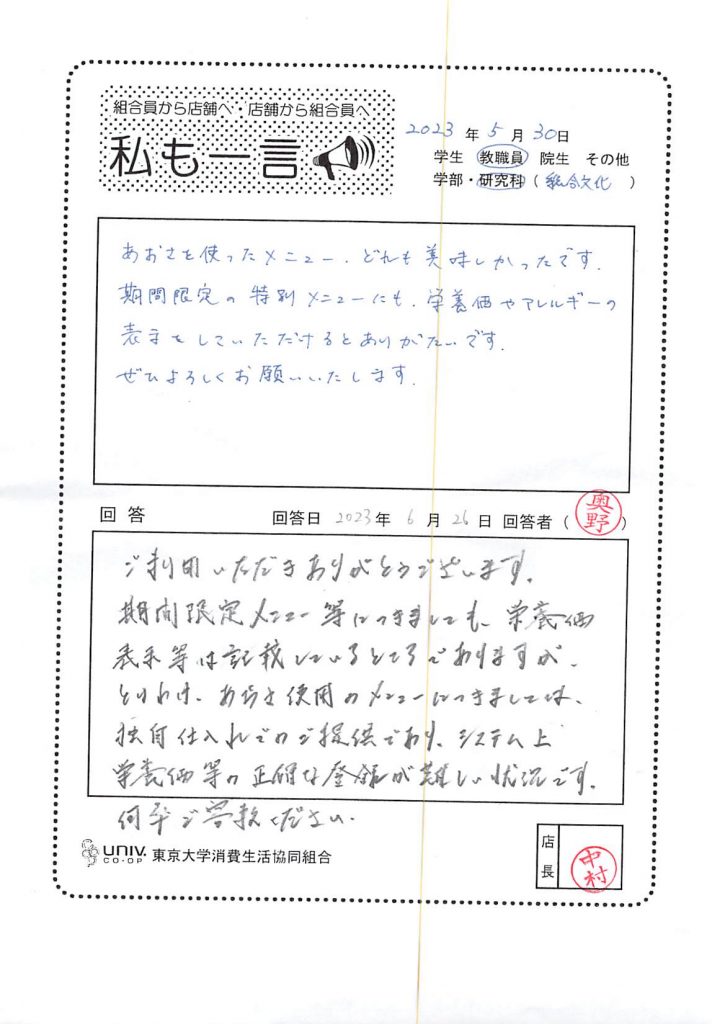 組合員から店舗へ・店舗から組合員へ
私も一言
2023年5月30日
学生 教職員 院生 その他
学部・研究科(総合文化)
あおさを使ったメニュー、どれも美味しかったです。
期間限定の特別メニューにも、栄養価やアレルギーの
表示をしていただけるとありがたいです。
ぜひよろしくお願いいたします。
回答 回答日 2023年6月26日 回答者(奥野)
ご利用いただきありがとうございます。
期間限定メニュー等につきましても、栄養価
表示等は記載しているところでありますが、
とりわけ、あおさ使用のメニューにつきましては、
独自仕入れでのご提供であり、システム上
栄養価等の正確な登録が難しい状況です。
何卒ご容赦ください。
UNIV. CO-OP 東京大学消費生活協同組合
店長 中村